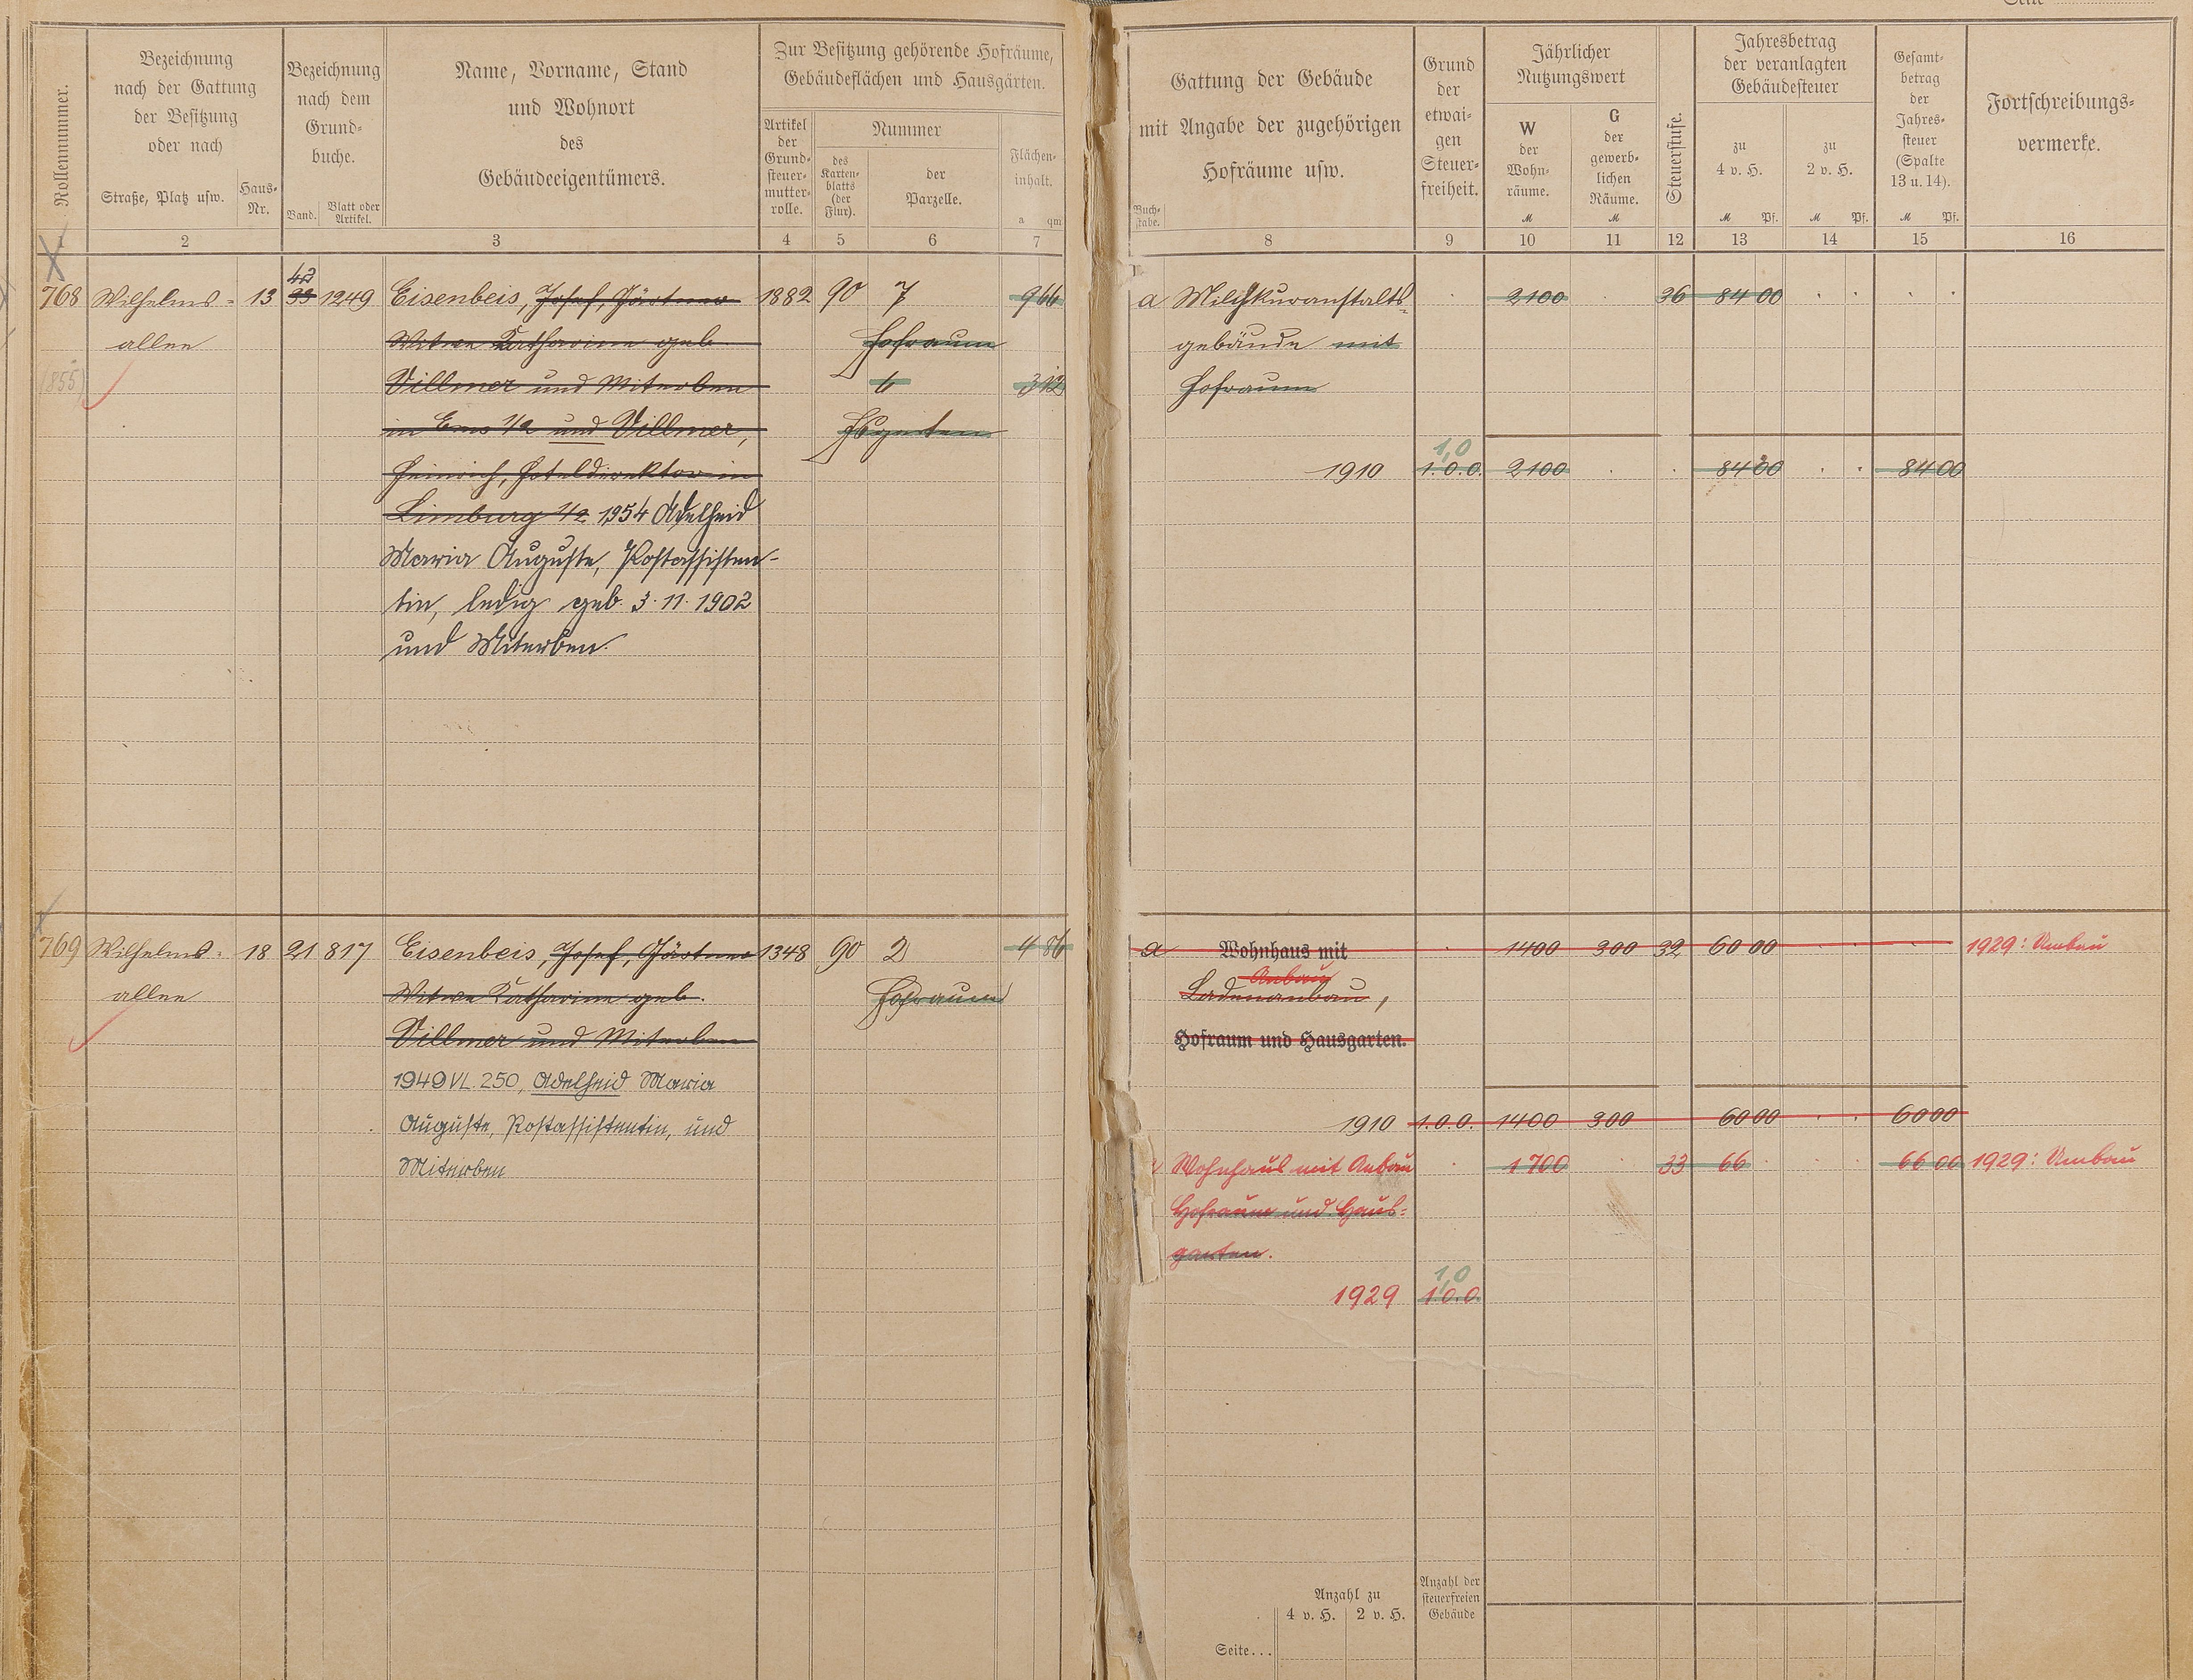 Seite
Rollennummer.
Bezeichnung
nach der Gattung
der Besitzung
oder nach
Straße, Platz usw.
Haus-
Nr.
Bezeichnung
nach dem
Grund-
buche.
Band.
Blatt oder
Artikel.
Name, Vorname, Stand
und Wohnort
des
Gebäudeeigentümers.
Zur Besitzung gehörende Hofräume,
Gebäudeflächen und Hausgärten.
Artikel
der
Grund-
steuer-
mutter-
rolle.
Nummer
des
Karten-
blatts
(der
Flur).
der
Parzelle.
Flächen-
inhalt.
a qm
1 2 3 4 5 6 7
Gattung der Gebäude
mit Angabe der zugehörigen
Hofräume usw.
Buch-
stabe.
Grund
der
etwai-
gen
Steuer-
freiheit.
Jährlicher
Nutzungswert
W
der
Wohn-
räume.
M
G
der
gewerb-
lichen
Räume.
M
Steuerstufe.
Jahresbetrag
der veranlagten
Gebäudesteuer
zu
4 v. H.
M Pf.
zu
2 v. H.
M Pf.
Gesamt-
betrag
der
Jahres-
steuer
(Spalte
13 u. 14).
M Pf.
Fortschreibungs-
vermerke.
8 9 10 11 12 13 14 15 16
42
768 Wilhelms- 13 33 1249 Eisenbeis, Josef, Gärtner 1882 90 7 966
allee Witwe Katharine geb. Hofraum
(855) Villmer und Miterben 6 312
in Ems 1/2 und Villmer, Hsgarten
Heinrich, Hoteldirektor in
Limburg 1/2 1954 Adelheid
Maria Auguste, Postassisten-
tin, ledig geb. 3.11.1902
und Miterben.
a Milchkuranstalts- 2100 36 84 00
gebäude mit
Hofraum
1,0
1910 1.0.0. 2100 84 00 84 00
769 Wilhelms- 18 21 817 Eisenbeis, Josef, Gärtner 1348 90 2 4 86
allee Witwe Katharine geb. Hofraum
Villmer und Miterben
1949 VL. 250, Adelheid Maria
Auguste, Postassistentin, und
Miterben
a Wohnhaus mit 1400 300 32 60 00 1929: Umbau
Anbau
Ladenanbau,
Hofraum und Hausgarten.
1910 1.0.0. 1400 300 60 00 60 00
Wohnhaus mit Anbau 1700 33 66 66 00 1929: Umbau
Hofraum und Haus-
garten.
1,0
1929 1.0.0.
Anzahl zu
4 v. H. 2 v. H.
Anzahl der
steuerfreien
Gebäude
Seite...